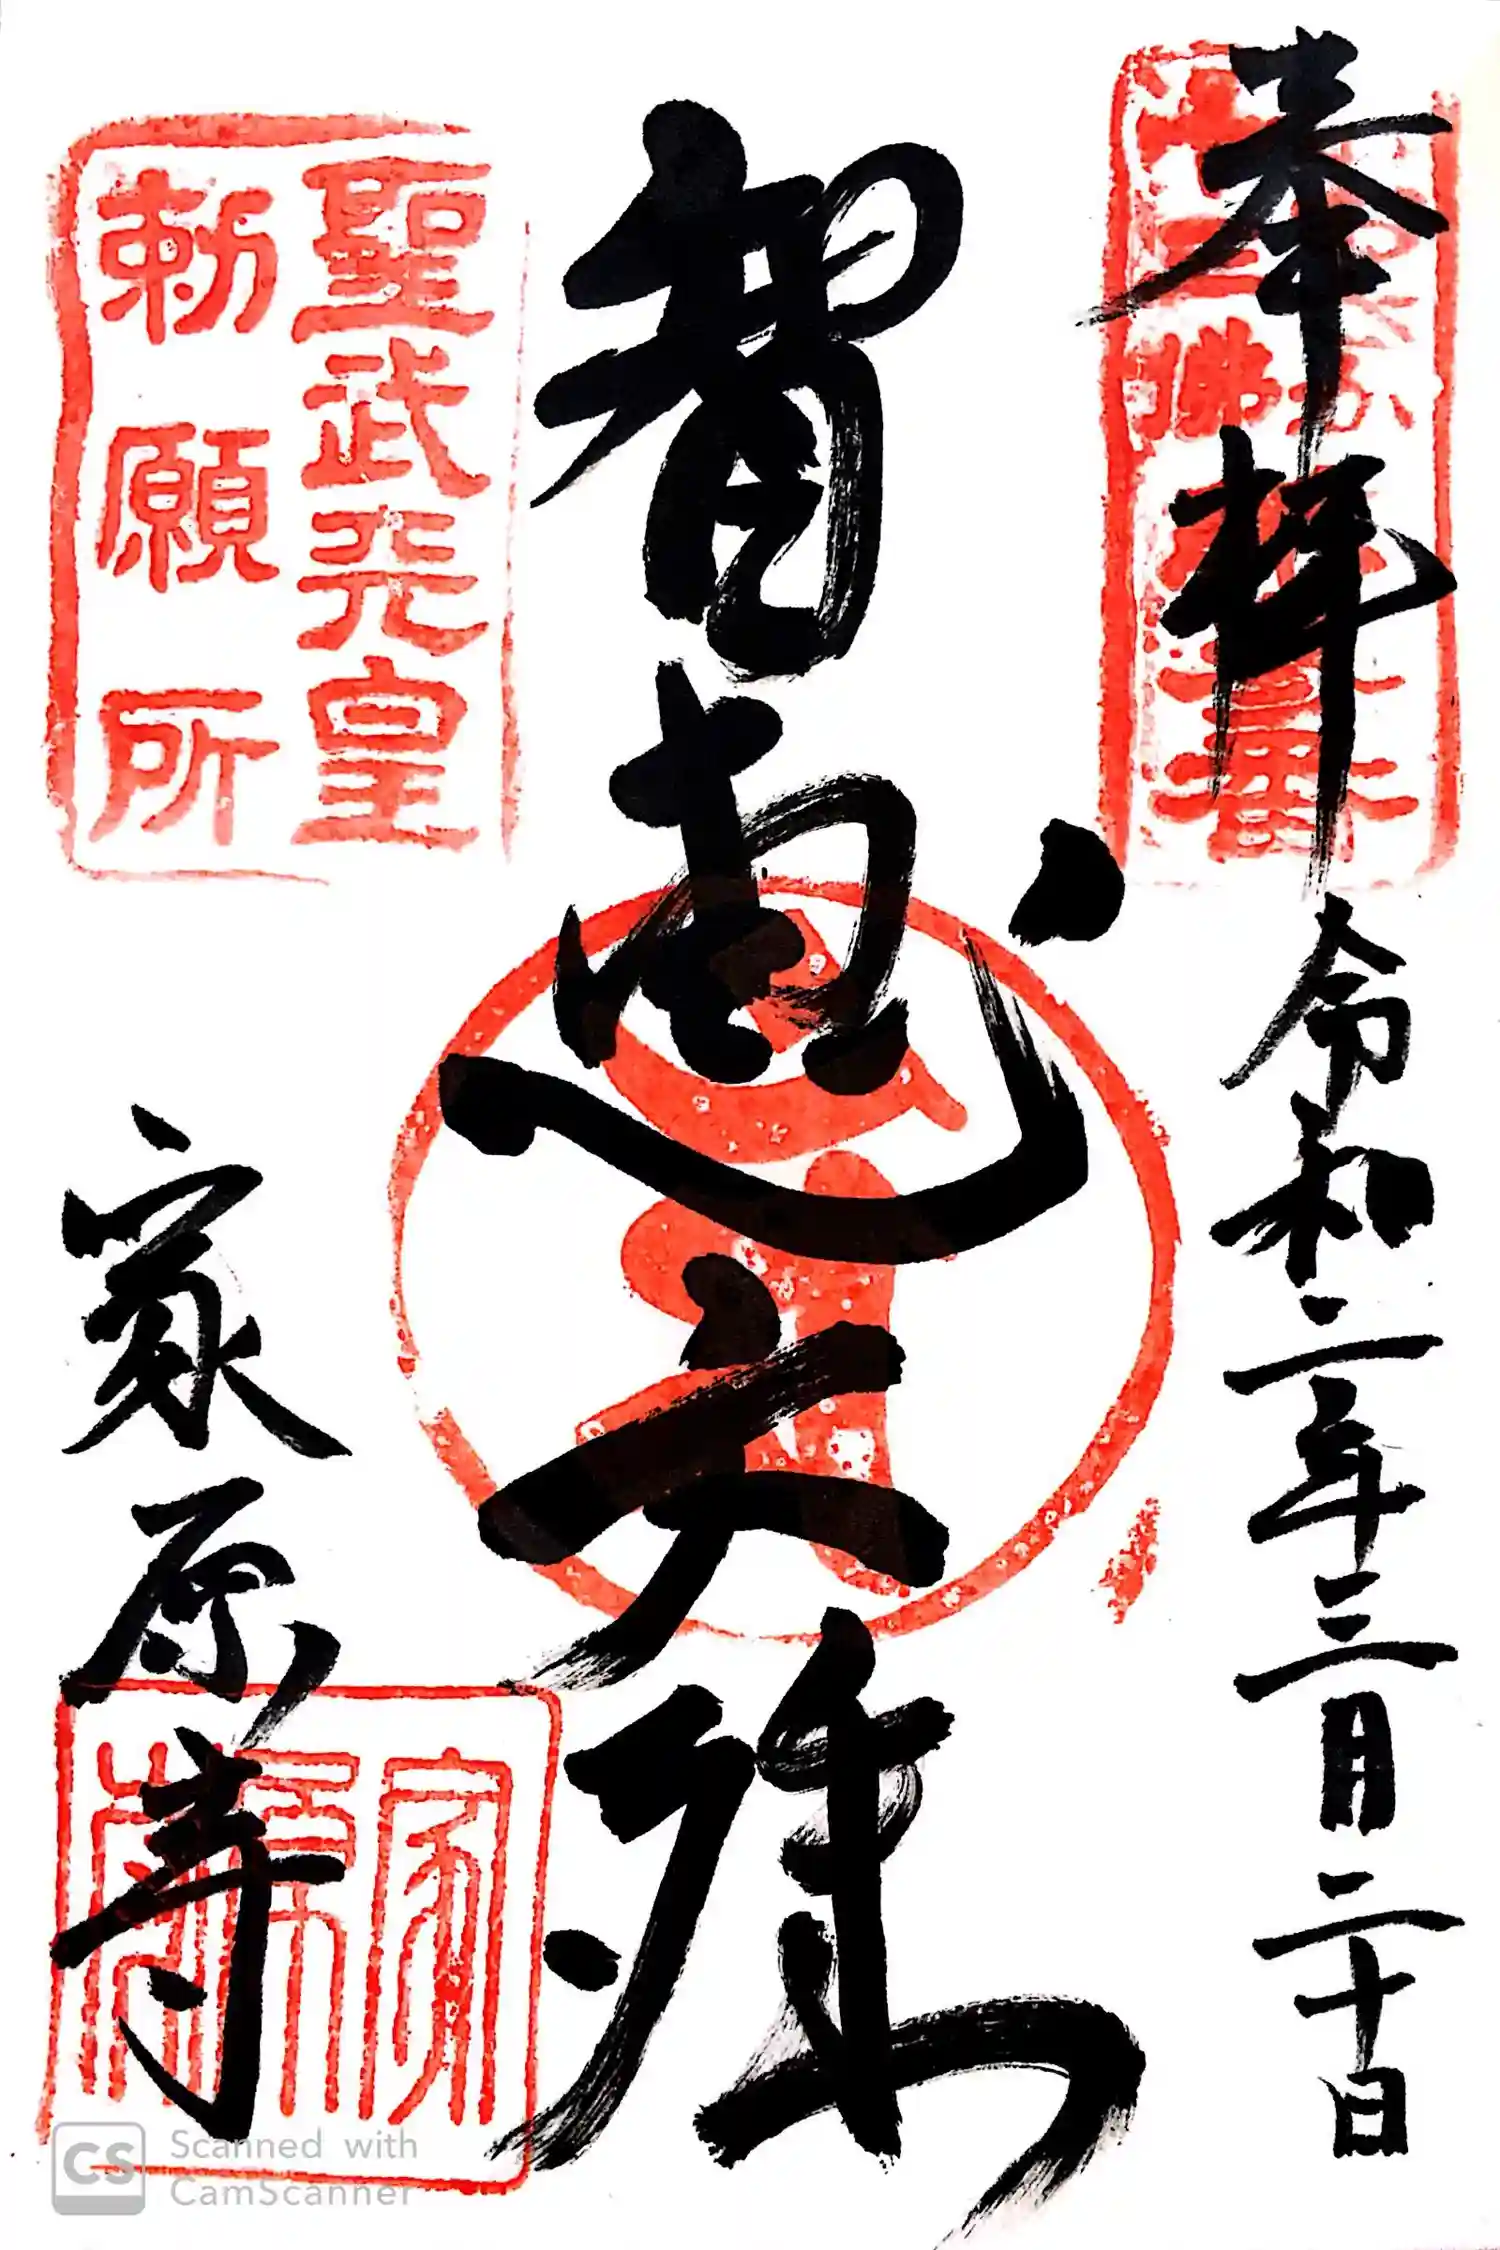 奉拝 令和二年三月二十日
智恵文殊
家原寺
聖武天皇
勅願所
家原寺
CS Scanned with
CamScanner